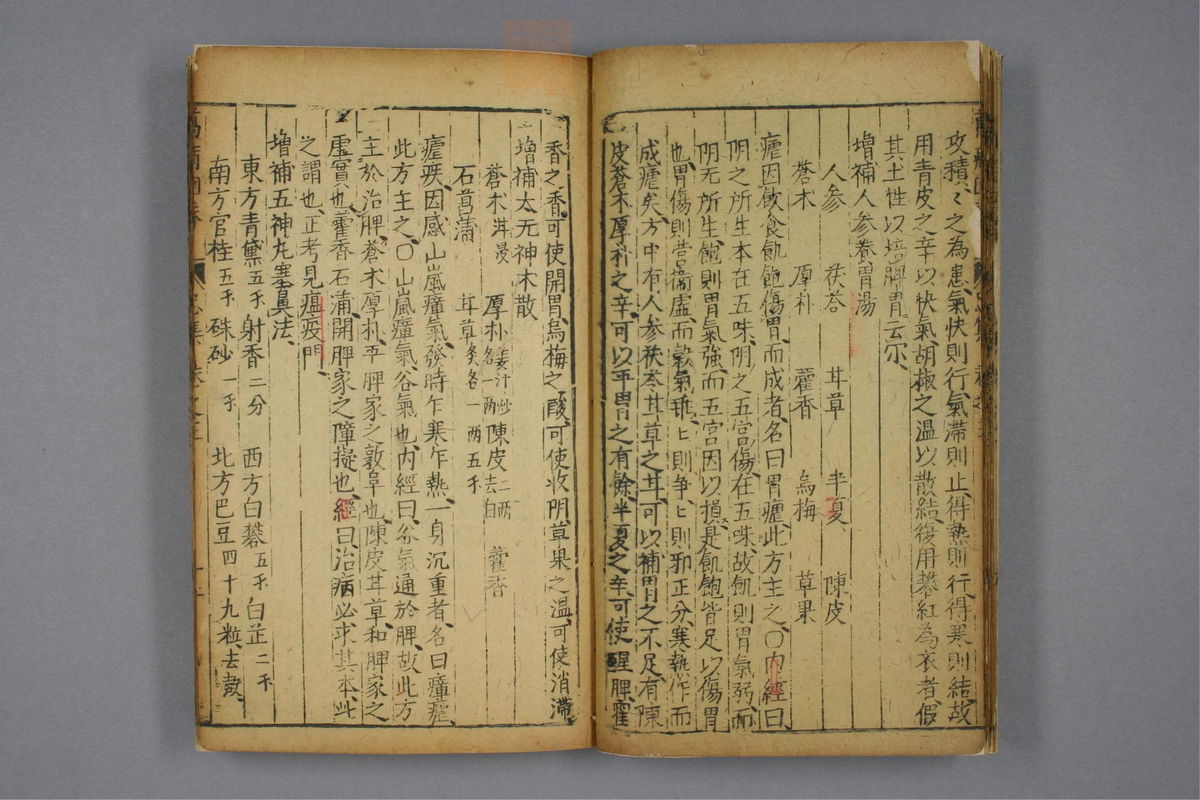 攻積〻之為患氣快則行氣滯則止得熱則行得寒則結故
用青皮之辛以快氣胡椒之温以散結後用礬紅為衣者假
其土性以培脾胃云尔
增補人参養胃湯
人参 茯苓 甘草 半夏 陳皮
蒼术 厚朴 藿香 烏梅 草果
瘧因飲食飢飽傷胃而成者名曰胃瘧此方主之〇内經曰
陰之所生本在五味阴之五宫傷在五味故飢則胃氣弱而
阴无所生飽則胃氣強而五宫因以損是飢飽皆足以傷胃
也胃傷則营衛虛而榖氣乖〻則争〻則邪正分寒熱作而
成瘧矣方中有人参茯苓甘草之甘可以補胃之不足有陳
皮蒼术厚朴之辛可以平胃之有餘半夏之辛可使醒脾藿
香之香可使開胃烏梅之酸可使收阴草果之温可使消滯
增補太无神术散
蒼术泔浸 厚朴姜汁炒各一两 陳皮去白二两 藿香
石菖蒲 甘草炙各一两五钱
瘧疾因感山嵐瘴氣發時乍寒乍熱一身沉重者名曰瘴瘧
此方主之〇山嵐瘴氣谷氣也内經曰谷氣通於脾故此方
主於治脾蒼术厚朴平脾家之敦阜也陳皮甘草和脾家之
虛實也藿香石蒲開脾家之障擬也經曰治病必求其本此
之謂也正考見瘟疫門
增補五神丸塞鼻法
東方青黛五钱 射香二分 西方白礬五钱 白芷二钱
南方官桂五钱 硃砂一钱 北方巴豆四十九粒去殼